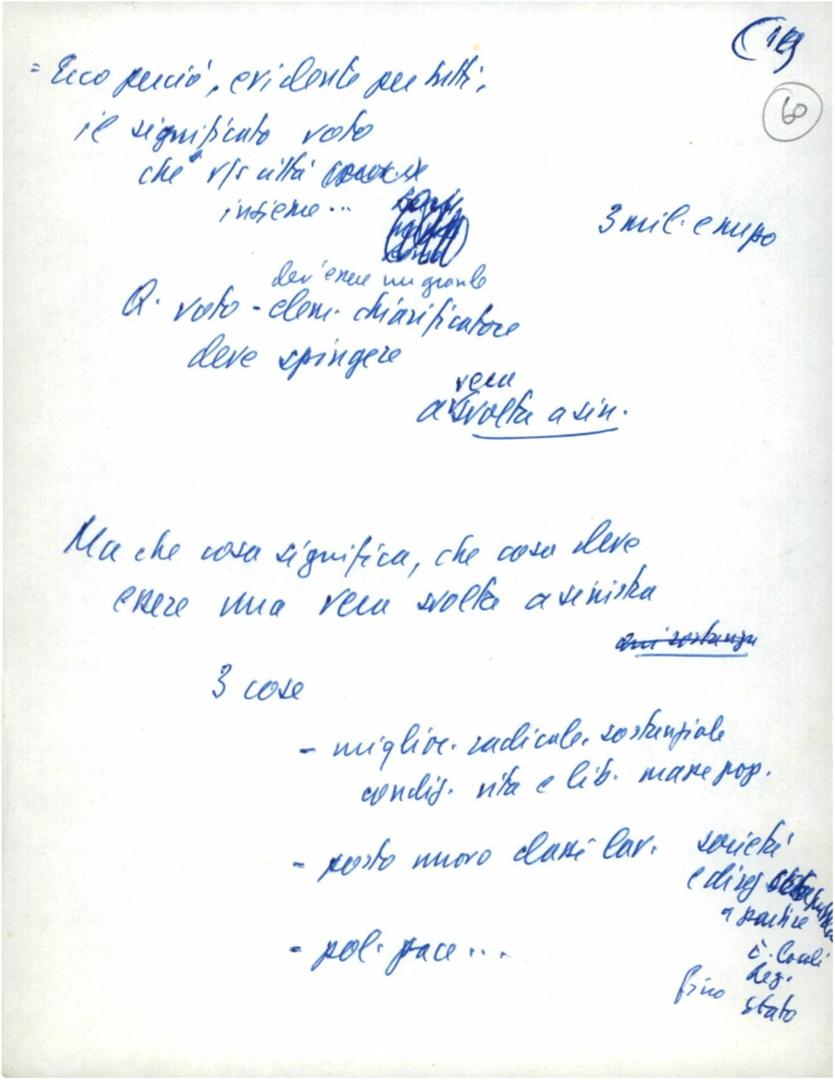 (19)
60
= Ecco perciò, evidente per tutti,
il significato voto
che v/s città
insieme...
3 mil. e mezzo
dev'essere un grande
Q. voto - elem. chiarificatore
deve spingere
vera
a svolta a sin.
Ma che cosa significa, che cosa deve
essere una vera svolta a sinistra
3 cose
- miglior. radicale, sostanziale
condiz. vita e lib. masse pop.
- posto nuovo classi lav. società
e direz
a partire
C. locali
Reg.
fino Stato
- pol. pace...